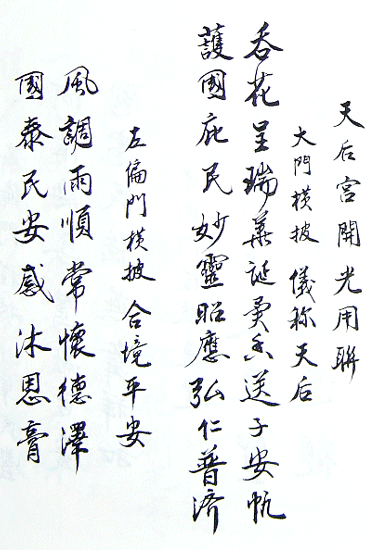 天后宮開光用聯
大門橫披 儀称天后
吞花呈瑞華誕異香送子安帆
護國庇民妙靈昭應弘仁普济
左偏門橫披 合境平安
風調雨順常懷德澤
國泰民安感沐恩膏